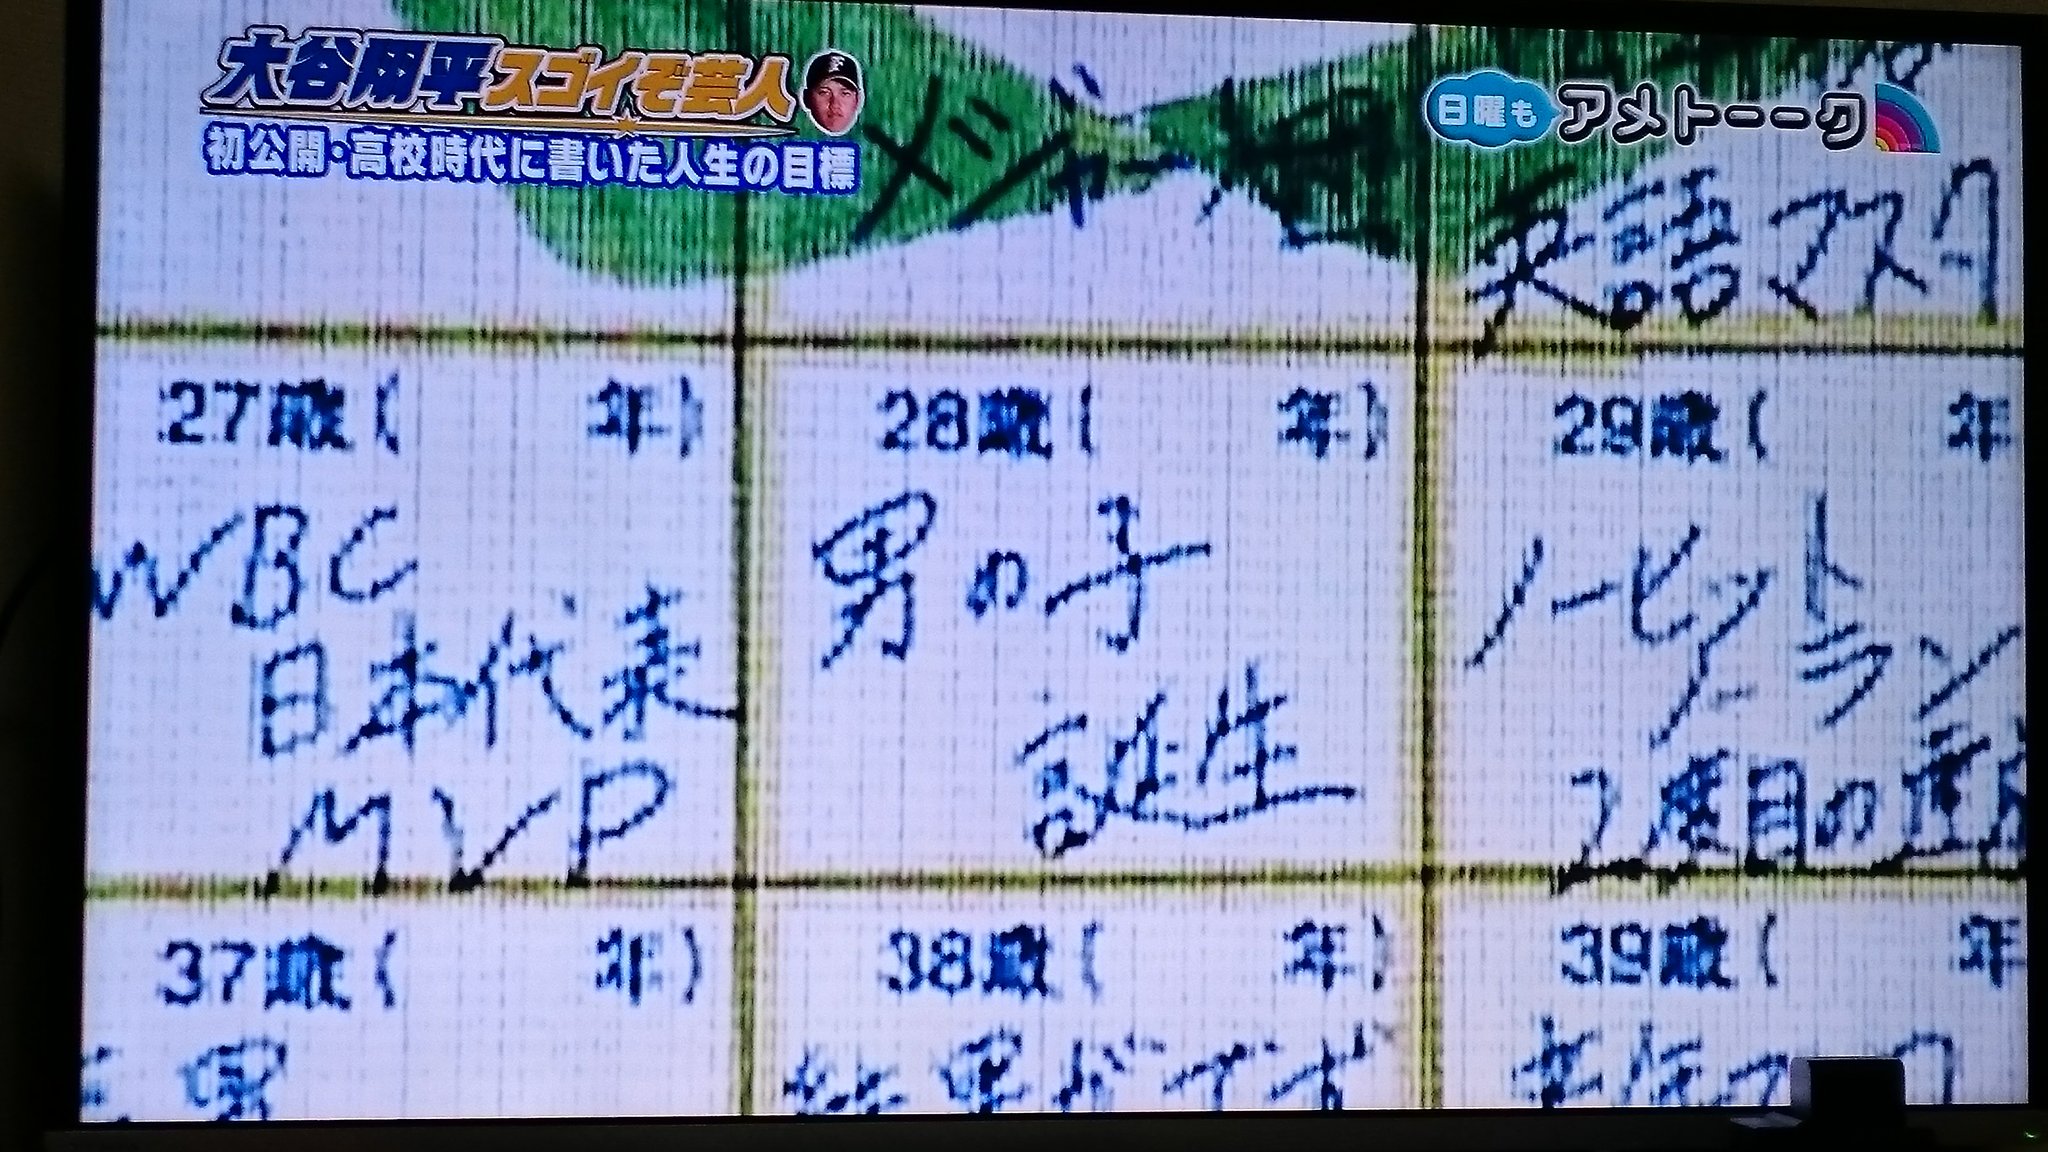 大谷翔平スゴイぞ芸人
初公開・高校時代に書いた人生の目標
日曜も アメトーーク
メジャー
英語マスタ
27歳( 年)
WBC
日本代表
MVP
28歳( 年)
男の子
誕生
29歳( 年
ノーヒット
ノーラン
2度目の達成
37歳( 年)
38歳( 年)
39歳( 年